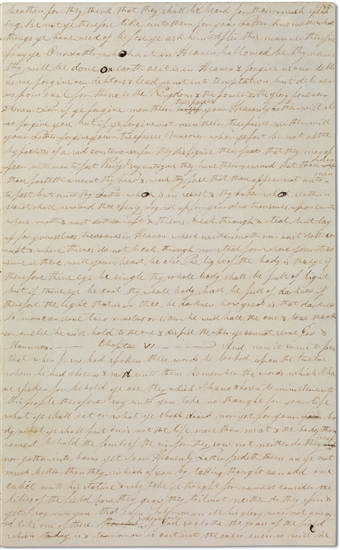 heathen for they think that they shall be heard for their much speak
ing be not ye therefore like unto them for your father knoweth what
things ye have need of before ye ask him after this manner therefore
pray ye Our father who art in Heaven hallowed be thy name
thy will be done on earth as it is in Heaven & forgive us our debts
as we forgive our debtors & lead us not into temptation but deliver
us from evil for thine is the Kingdom & the power & the glory forever
& Amen for if ye forgive men their trespasses your Heavenly father will al
so forgive you but if ye forgive not men their trespasses neither will
your father forgive your trespasses moreover when ye fast be not as the
hypocrites of a sad countenance for they disfigure their faces that they may ap
pear unto men to fast verily I say unto you they have their reward but thou when
thou fastest anoint thy head & wash thy face that thou appear not unto men
to fast but unto thy father who is in secret & thy father who seeth in
secret shall reward thee openly lay not up for yourselves treasures upon earth
where moth & rust doth corrupt & thieves break through & steal but lay
up for yourselves treasures in Heaven where neither moth nor rust doth cor
rupt & where thieves do not break through nor steal for where your treas
ure is there will your heart be also the light of the body is the eye if
therefore thine eye be single thy whole body shall be full of light
but if thine eye be evil thy whole body shall be full of darkness if
therefore the light that is in thee be darkness how great is that darkness
no man can serve two masters for either he will hate the one & love the other
or else he will hold to the one & despise the other ye cannot serve God &
Mammon Chapter VI And now it came to pass
that when Jesus had spoken these words he looked upon the twelve
whom he had chosen & said unto them Remember the words which I have
spoken for behold ye are they which I have chosen to minister unto
this people therefore I say unto you take no thought for your life
what ye shall eat or what ye shall drink nor yet for your
body what ye shall put on is not the life more than meat & the body than
raiment behold the fowls of the air for they sow not neither do they reap
nor gather into barns yet your Heavenly father feedeth them are ye not
much better than they which of you by taking thought can add one
cubit unto his stature & why take ye thought for raiment consider the
lilies of the field how they grow they toil not neither do they spin &
yet I say unto you that even Solomon in all his glory was not array
ed like one of these wherefore if God so clothe the grass of the field
which today is & tomorrow is cast into the oven even so will he